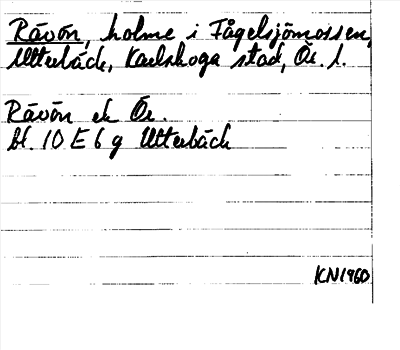 Rävön, holme i Fågelsjömossen,
Utterbäck, Karlskoga stad, Ör. l.
Rävön ek Ör.
bl. 10 E 6 g Utterbäck
KN1960